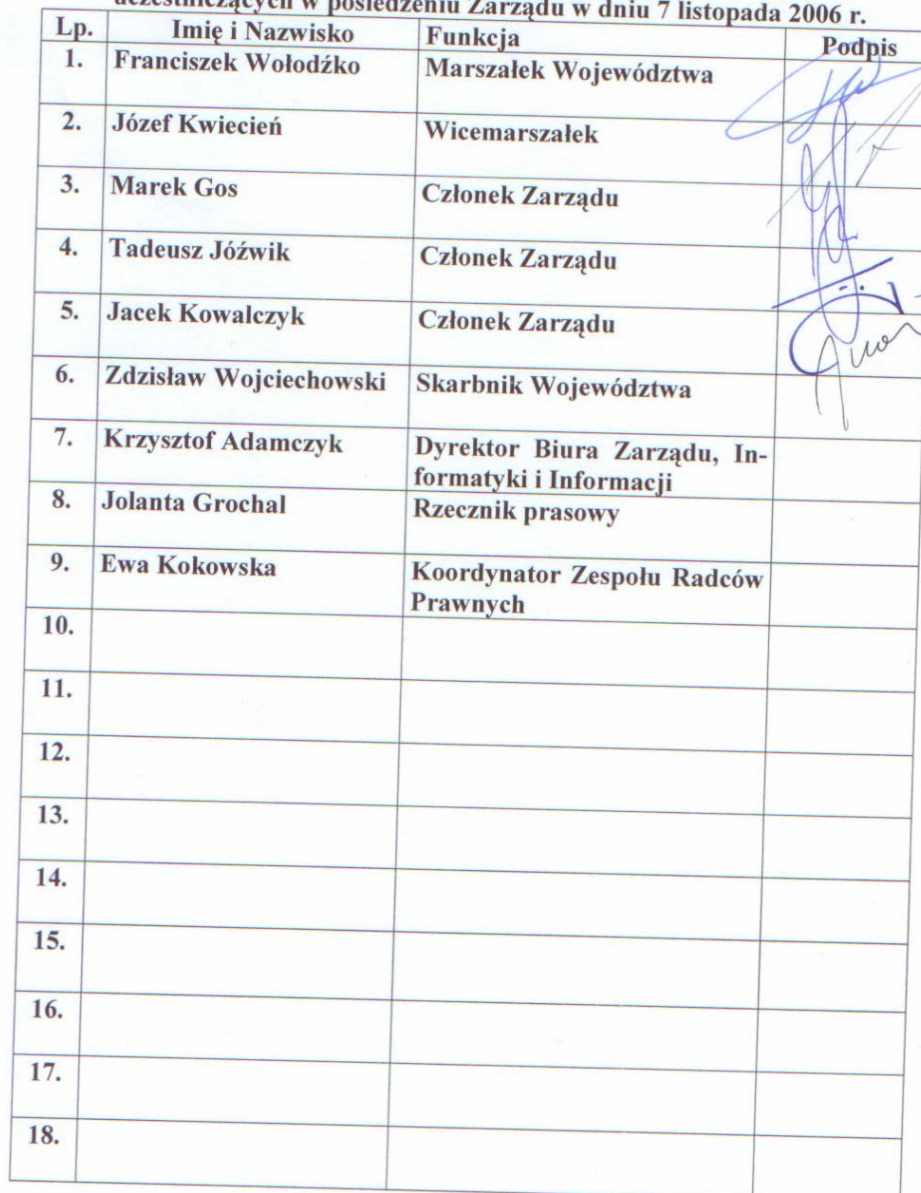 uczestniczących w posiedzeniu Zarządu w dniu 7 listopada 2006 r.
Lp. Imię i Nazwisko Funkcja Podpis
1. Franciszek Wołodźko Marszałek Województwa
2. Józef Kwiecień Wicemarszałek
3. Marek Gos Członek Zarządu
4. Tadeusz Jóźwik Członek Zarządu
5. Jacek Kowalczyk Członek Zarządu
6. Zdzisław Wojciechowski Skarbnik Województwa
7. Krzysztof Adamczyk Dyrektor Biura Zarządu, In-
formatyki i Informacji
8. Jolanta Grochal Rzecznik prasowy
9. Ewa Kokowska Koordynator Zespołu Radców
Prawnych
10.
11.
12.
13.
14.
15.
16.
17.
18.